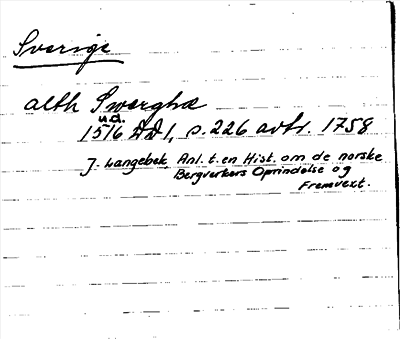 Sverige
alth Swerghæ
u.d.
1516 DD 1, s. 226 avtr. 1758
J. Langebek, Anl. t. en Hist. om de norske
Bergverkers Oprindelse og
Fremvext.